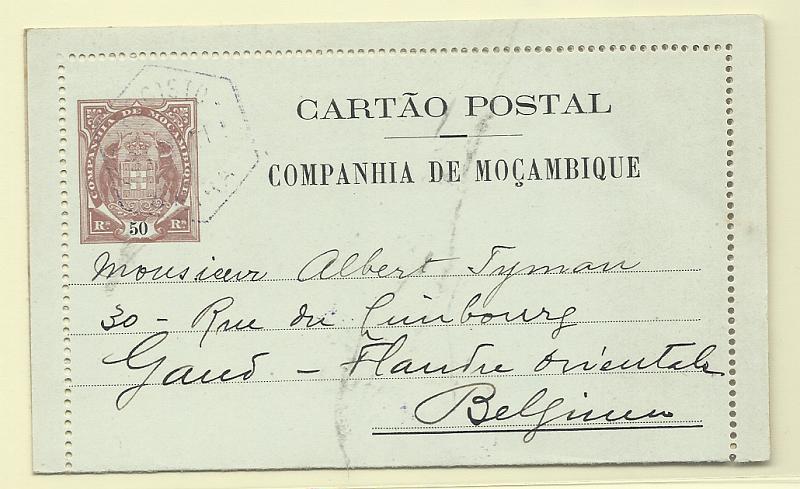 CARTÃO POSTAL
COMPANHIA DE MOÇAMBIQUE
COMPANHIA DE MOÇAMBIQUE
Rs 50 Rs
Monsieur Albert Tyman
30 - Rue du Limbourg
Gand - Flandre Orientale
Belgium